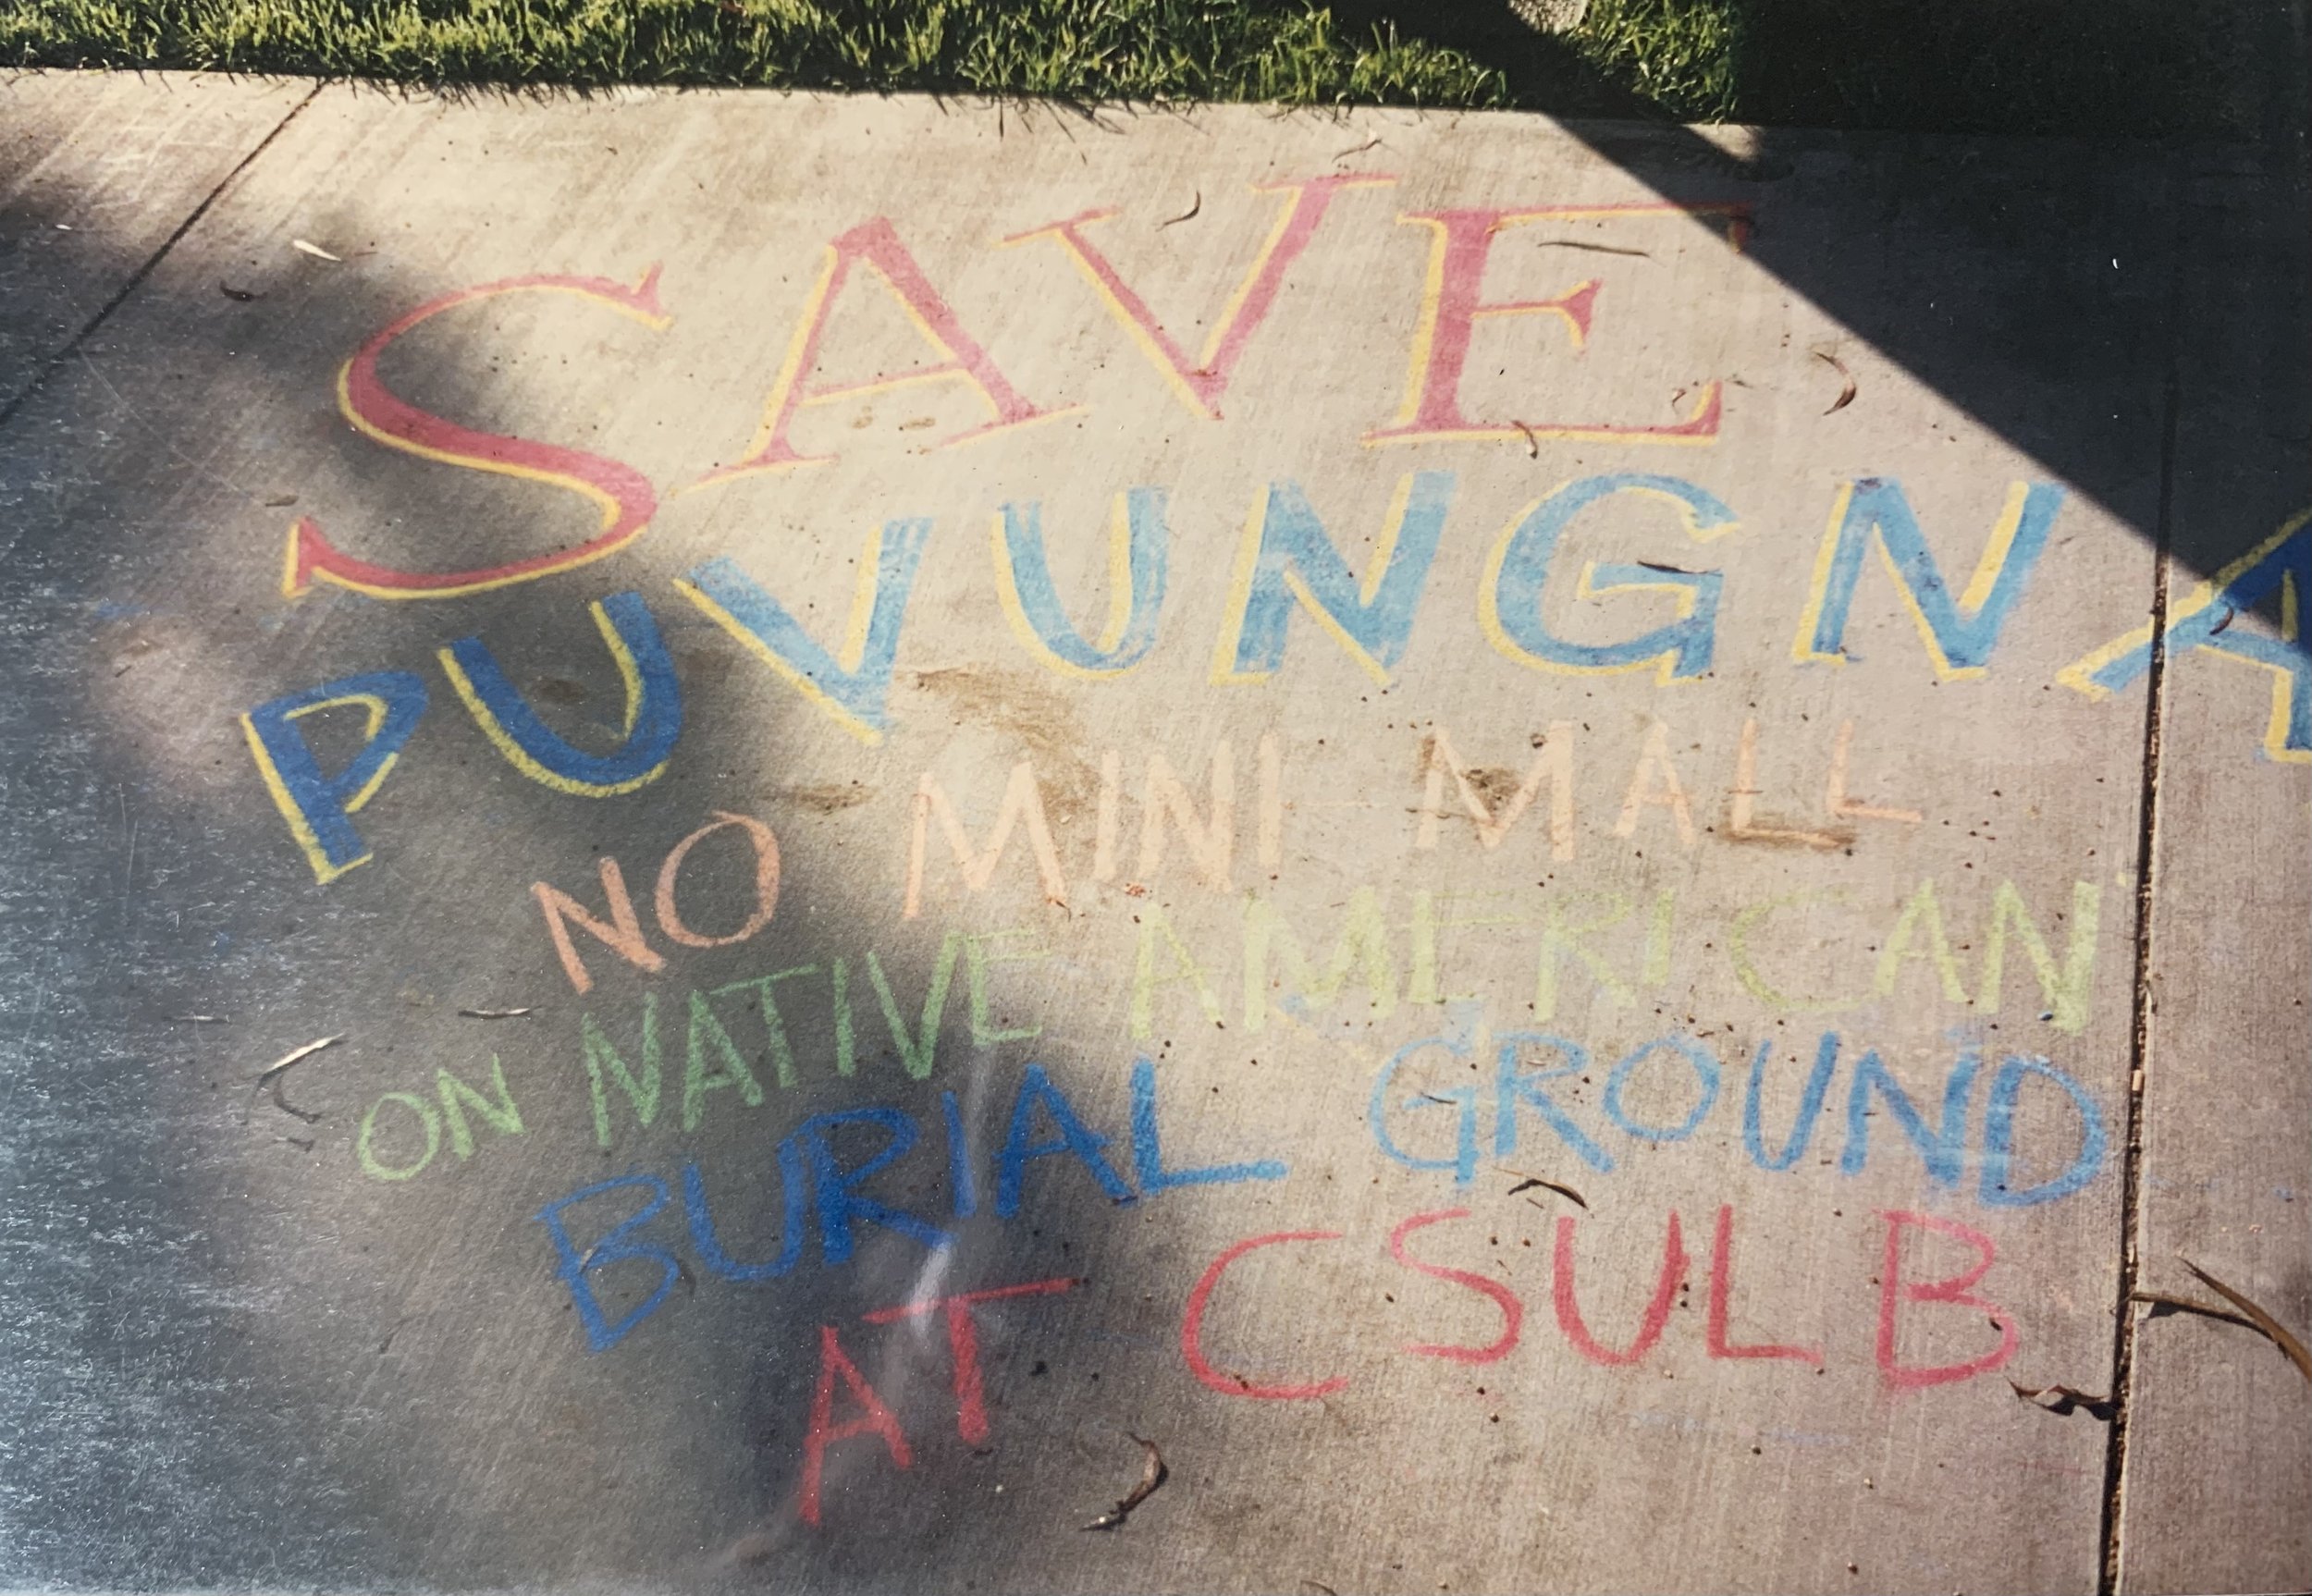 SAVE
PUVUNGNA
NO MINI MALL
ON NATIVE AMERICAN
BURIAL GROUND
AT CSULB